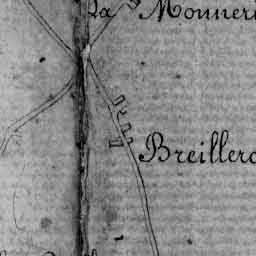 La Monneri
Breillero